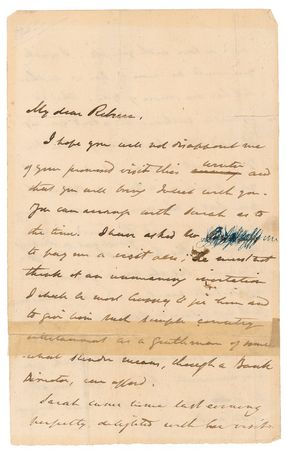 My dear Rebecca.
I hope you will not disappoint me
of your promised visit this winter and
that you will bring with you.
You can arrange with Sarah as to
the time. I have asked
to pay me a visit also; he must not
think of an unmeaning invitation
I shall be most happy to see him and
to give him such simple country
entertainment as a gentleman of some
what slender means, though a Bank
Director, can afford.
Sarah came home last evening
perfectly delighted with her visit